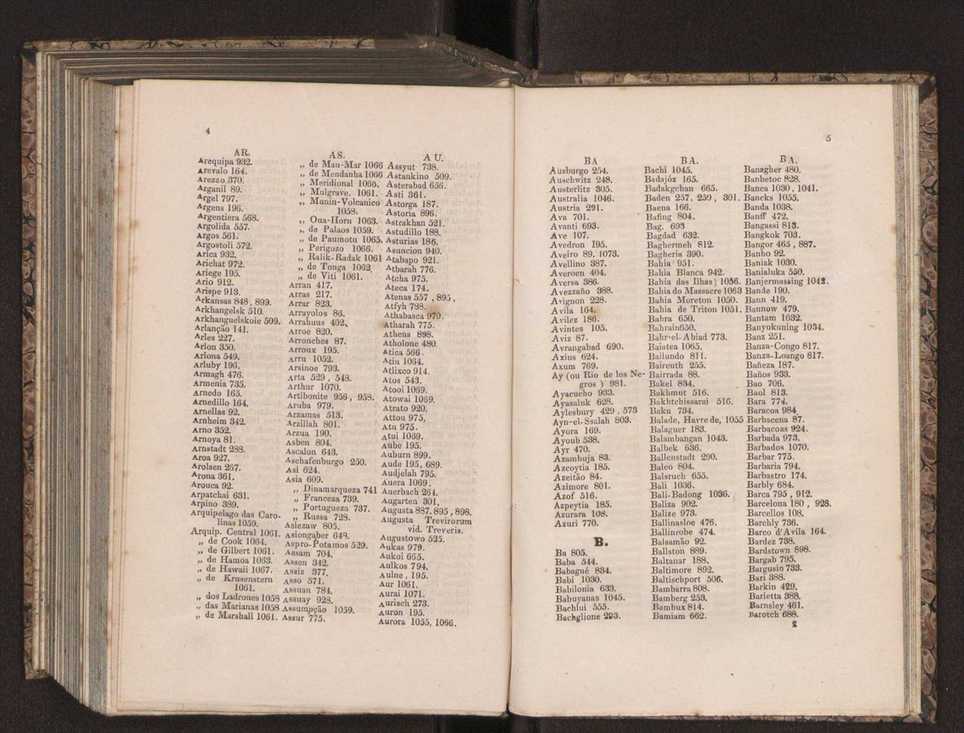 4
AR.
Arequipa 932.
Arevalo 164.
Arezzo 370.
Arganil 89.
Argel 797.
Argens 196.
Argentiera 568.
Argolida 557.
Argos 561.
Argostoli 572.
Arica 932.
Arichat 972.
Ariege 195.
Ario 912.
Arispe 913.
Arkansas 848, 899.
Arkhangelsk 510.
Arkhanguelskoie 509.
Arlanção 141.
Arles 227.
Arlon 350.
Arlona 549.
Arluby 196.
Armagh 476.
Armenia 735.
Arnedo 165.
Arnedillo 164.
Arnellas 92.
Arnheim 342.
Arno 352.
Arnoya 81.
Arnstadt 288.
Aroa 927.
Arolsen 267.
Arona 361.
Arouca 92.
Arpatchai 631.
Arpino 389.
Arquipelago das Caro-
linas 1059.
Arquip. Central 1061.
„ de Cook 1064.
„ de Gilbert 1061.
„ de Hamoa 1063.
„ de Hawaii 1067.
„ de Krusenstern
1061.
„ dos Ladrones 1058
„ das Marianas 1058
„ de Marshall 1061.
AS.
„ de Mau-Mar 1066
„ de Mendanha 1066
„ Meridional 1060.
„ Mulgrave. 1061.
„ Munin-Volcanico
1058.
„ Oua-Horn 1063.
„ de Palaos 1059.
„ de Paumotu 1065.
„ Perigozo 1066.
„ Ralik-Radak 1061
„ de Tonga 1062
„ de Viti 1061.
Arran 417.
Arras 217.
Arrer 823.
Arrayolos 86.
Arrahuas 492.
Arroe 820.
Arronches 87.
Arroux 195.
Arru 1052.
Arsinoe 793.
Arta 529, 548.
Arthur 1070.
Artibonite 956, 958.
Aruba 979.
Arzamas 513.
Arzillah 801.
Arzua 190.
Asben 804.
Ascalon 643.
Aschaffenburgo 250.
Asi 624.
Asia 609.
„ Dinamarqueza 741
„ Franceza 739.
„ Portugueza 737.
„ Russa 728.
Asiezaw 805.
Asiongaber 648.
Aspro-Potamos 529.
Assam 704.
Assen 342.
Assiz 377.
Asso 571.
Assuan 784.
Assuay 928.
Assumpção 1059.
Assur 775.
AU.
Assyut 738.
Astankino 509.
Asterabad 656.
Asti 361.
Astorga 187.
Astoria 896.
Astrakhan 521.
Astudillo 188.
Asturias 186.
Asuncion 940.
Atabapo 921.
Atbarah 776.
Atcha 975.
Ateca 174.
Atenas 557, 895,
Atfyh 788.
Athabasca 970.
Atharah 775.
Athens 898.
Atholone 480.
Atica 566.
Atiu 1064.
Atlixco 914.
Atos 543.
Atooi 1069.
Atowai 1069.
Atrato 920.
Attou 975.
Atu 975.
Atui 1069.
Aube 195.
Auburn 899.
Aude 195, 689.
Audjelah 795.
Auera 1069.
Auerbach 264.
Augarten 301,
Augusta 887. 895, 898.
Augusta Trevirorum
vid. Treveris.
Augustowo 525.
Aukas 979.
Aukoi 665.
Aulkos 794.
Aulne, 195.
Aur 1061.
Aurai 1071.
Aurisch 273.
Auron 195.
Aurora 1055, 1066.
5
BA
Ausburgo 254.
Auschwitz 248.
Austerlitz 305.
Australia 1046.
Austria 291.
Ava 701.
Avanti 693.
Ave 107.
Avedron 195.
Aveiro 89, 1073.
Avellino 387.
Averoen 404.
Aversa 386.
Avezzaño 388.
Avignon 228.
Avila 164.
Avilez 186.
Avintes 105.
Aviz 87.
Avrangabad 690.
Axius 624.
Axum 769.
Ay (ou Rio de los Ne-
gros) 981.
Ayacucho 933.
Ayasaluk 628.
Aylesbury 429, 573
Ayn-el-Ssalah 803.
Ayora 169.
Ayoub 538.
Ayr 470.
Azambuja 83.
Azcoytia 185.
Azeitão 84.
Azimore 801.
Azof 516.
Azpeytia 185.
Azurara 108.
Azuri 770.
B.
Ba 805.
Baba 544.
Babagué 834.
Babi 1030.
Babilonia 633.
Babuyanas 1045.
Bachlui 555.
Bachglione 293.
BA.
Bachi 1045.
Badajós 165.
Badakgchan 665.
Baden 257, 259, 301.
Baena 166.
Bafing 804.
Bag. 693
Bagdad 632.
Baghermeh 812.
Bagheris 390.
Bahia 951.
Bahia Blanca 942.
Bahia das Ilhas 1056.
Bahia do Massacre 1063
Bahia Moreton 1050.
Bahia de Triton 1051.
Bahra 650.
Bahrain 650.
Bahr-el-Abiad 773.
Baiotea 1065.
Bailundo 811.
Baireuth 255.
Bairrada 88.
Bakel 834.
Bakhmut 516.
Bakhtchissarai 516.
Baku 734.
Balade, Havre de, 1055
Balaguer 183.
Balambangan 1043.
Balbek 636.
Ballenstadt 290.
Balco 804.
Balsruch 655.
Bali 1036.
Bali-Badong 1036.
Baliza 902.
Balize 973.
Ballinasloe 476.
Ballinrobe 474.
Balsamão 92.
Ballston 889.
Baltanar 188.
Baltimore 892.
Baltischport 506.
Bambarra 808.
Bamberg 253.
Bambux 814.
Bamiam 662.
BA.
Banagher 480.
Banbetoc 828.
Banca 1030, 1041.
Bancks 1055.
Banda 1038.
Banff 472.
Bangassi 813.
Bangkok 703.
Bangor 465, 887.
Banho 92.
Baniak 1030.
Banialuka 550.
Banjermassing 1042.
Bande 190.
Bann 419.
Bannow 479.
Bantam 1032.
Banyokuning 1034.
Banz 251.
Banza-Congo 817.
Banza-Loango 817.
Bañeza 187.
Baños 933.
Bao 706.
Baol 813.
Bara 774.
Baracoa 984
Barbacena 87.
Barbacoas 924.
Barbada 973.
Barbados 1070.
Barbar 775.
Barbaria 794.
Barbastro 174.
Barbly 684.
Barca 795, 912.
Barcelona 180, 928.
Barcellos 108.
Barchly 736.
Barco d'Avila 164.
Bardez 738.
Bardstown 898.
Bargab 795.
Bargusio 733.
Bari 388.
Barkin 429.
Barletta 388.
Barnsley 461.
Barotch 688.
2